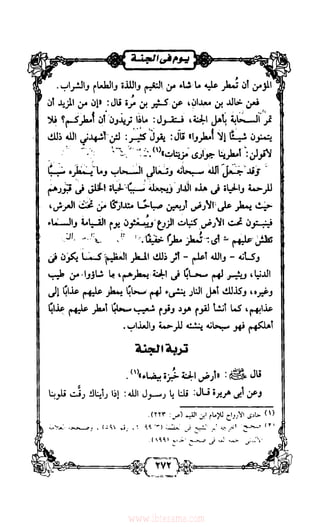 يـوم فى الجنـة
المؤمن أن تمطر عليه ما شاء من النعيم واللذة والطعام والشراب.
فعن خالد بن معدان، عن كثير بن مُرة قال: «إن من المزيد أن
تمر السحابة بأهل الجنة، فتقول: ماذا تريدون أن أمطركم؟ فلا
يتمنون شيئًا إلا أمطروا» قال: يقول كثير: لئن أشهدنى الله ذلك
لأقولن: أمطرينا جوارى مزينات»(١).
وقد جعل الله سبحانه وتعالى السحاب وما يمطره سببًا
للرحمة والحياة فى هذه الدار ويجعله سببًا لحياة الخلق فى قبورهم
حيث يمطر على الأرض أربعين صباحًا متداركًا من تحت العرش،
فينبتون تحت الأرض كنبات الزرع ويبعثون يوم القيامة والسماء
تطش عليهم - أى: تُمطر مطرًا خفيفًا.
وكأنه - والله أعلم - أثر ذلك المطر العظيم كما يكون فى
الدنيا، ويثير لهم سحابًا فى الجنة يمطرهم، ما شاؤوا من طيب
وغيره، وكذلك أهل النار ينشىء لهم سحابًا يمطر عليهم عذابًا إلى
عذابهم، كما أنشأ لقوم هود وقوم شعيب سحابًا أمطر عليهم عذابًا
أهلكهم فهو سبحانه ينشئه للرحمة والعذاب.
تربـة الجنـة
قال ﷺ: «أرض الجنة خُبزة بيضاء»(٢).
وعن أبى هريرة قال: قلنا يا رسول الله: إذا رأيناك رقت قلوبنا
(١) حادى الأرواح للإمام ابن القيم (ص: ٢٢٣).
(٢) صحيح أخرجه أبو الشيخ فى العظمة
٢٧٢
www.ibtesama.com